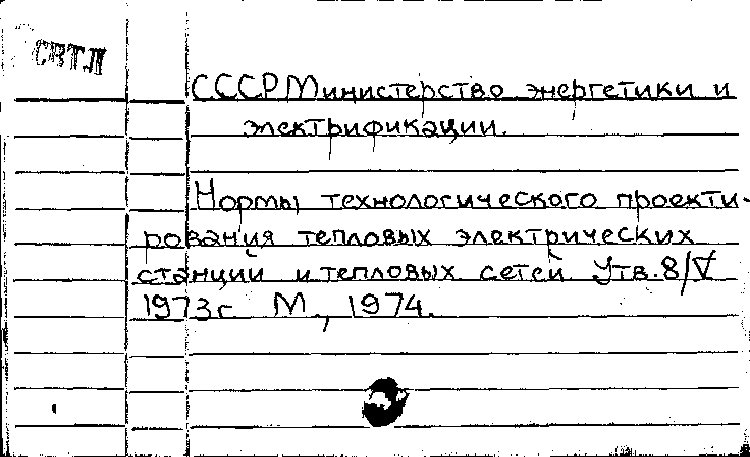 СВТЛ
СССР Министерство энергетики и
электрификации.
Нормы технологического проекти-
рования тепловых электрических
станций и тепловых сетей Утв. 8/V
1973г М., 1974.